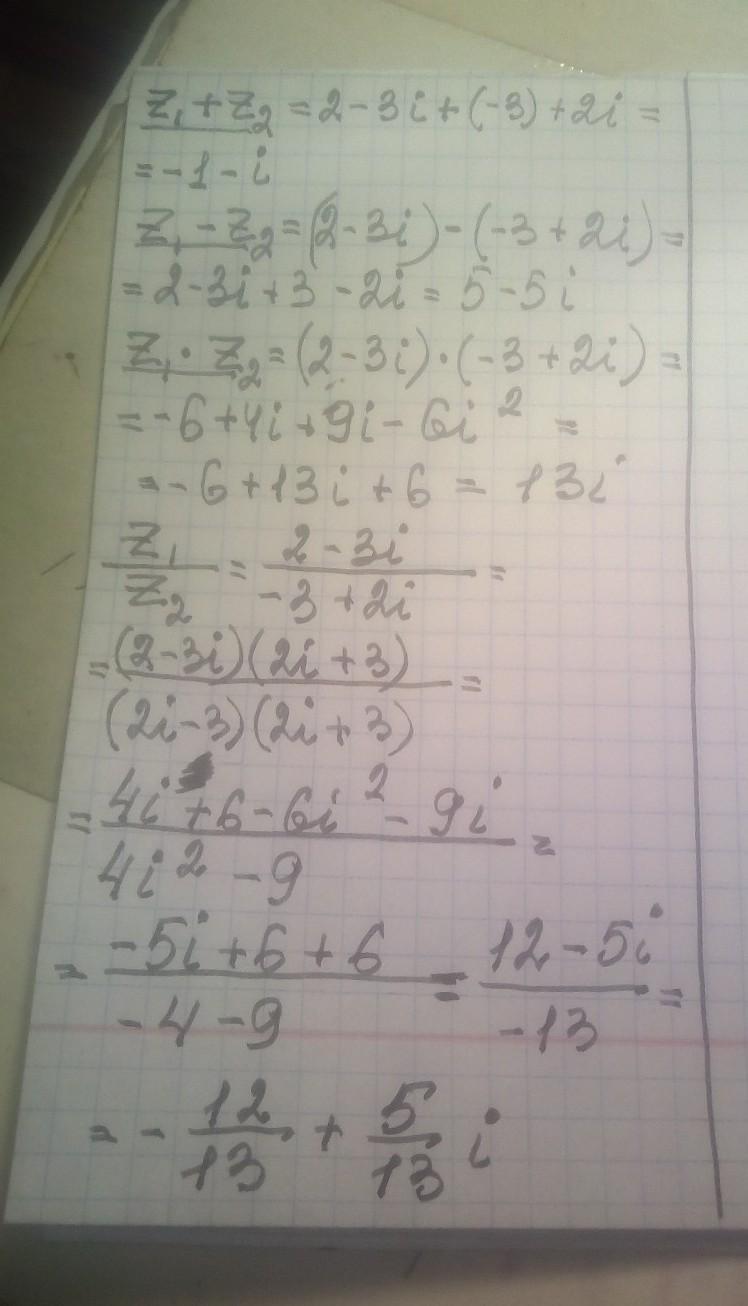 z₁ + z₂ = 2 - 3i + (-3) + 2i =
= -1 - i
z₁ - z₂ = (2 - 3i) - (-3 + 2i) =
= 2 - 3i + 3 - 2i = 5 - 5i
z₁ · z₂ = (2 - 3i) · (-3 + 2i) =
= -6 + 4i + 9i - 6i² =
= -6 + 13i + 6 = 13i
z₁/z₂ = (2 - 3i)/(-3 + 2i) =
= (2 - 3i)(2i + 3)/(2i - 3)(2i + 3) =
= (4i + 6 - 6i² - 9i)/(4i² - 9) =
= (-5i + 6 + 6)/(-4 - 9) = (12 - 5i)/(-13) =
= - 12/13 + 5/13 i